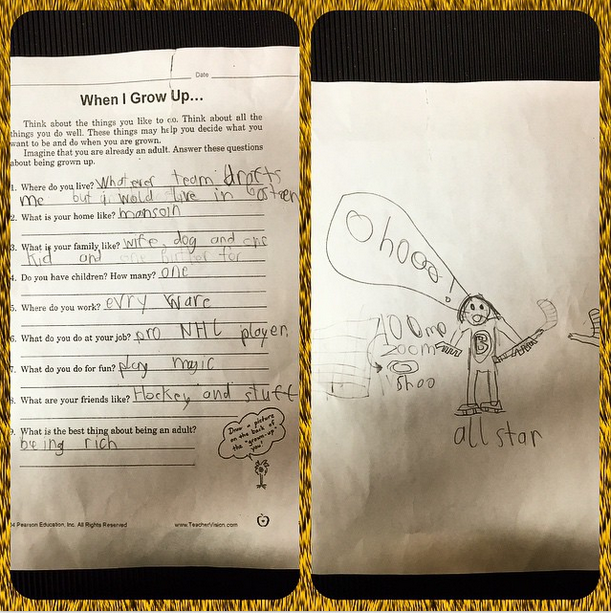 Date
When I Grow Up...
Think about the things you like to do. Think about all the
things you do well. These things may help you decide what you
want to be and do when you are grown.
Imagine that you are already an adult. Answer these questions
about being grown up.
1. Where do you live? Whatever team drafts
me but i would live in bosten
2. What is your home like? mansoin
3. What is your family like? wife, dog and one
kid and one
4. Do you have children? How many? one
5. Where do you work? evry ware
6. What do you do at your job? pro NHL player
7. What do you do for fun? play magic
8. What are your friends like? Hockey and stuff
9. What is the best thing about being an adult?
being rich
Draw a picture
on the back of
the "grown-up
you!
Pearson Education, Inc. All Rights Reserved
www.TeacherVision.com
Ohooo!
100mp
zoom
B
all star